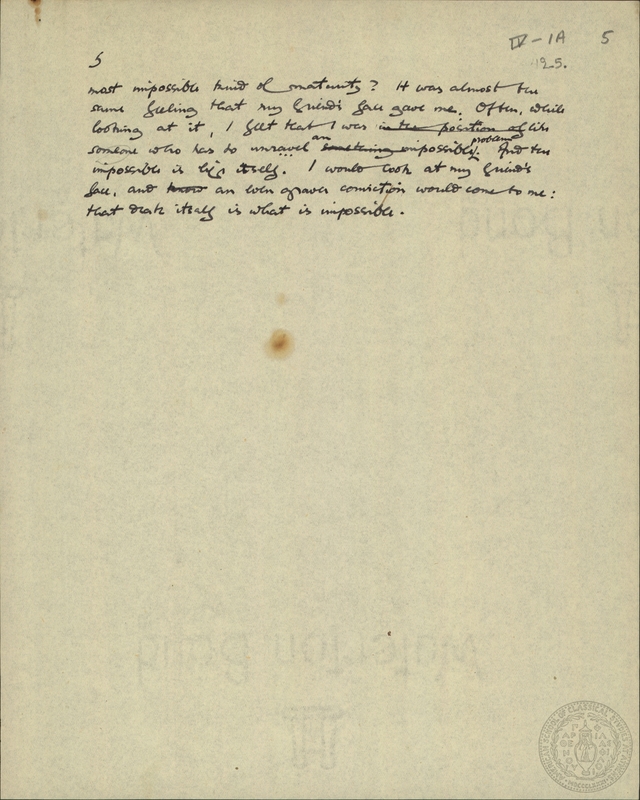 IV-1A 5
125.
5
most impossible kind of maturity? It was almost the
same feeling that my friend's face gave me. Often, while
looking at it, I felt that I was in the position of like
someone who has to unravel something an impossible problem. And the
impossible is life itself. I would look at my friend's
face, and an even graver conviction would come to me:
that death itself is what is impossible.
Waterton Bond
AMERICAN SCHOOL OF CLASSICAL STUDIES AT
MDCCCLXXXI